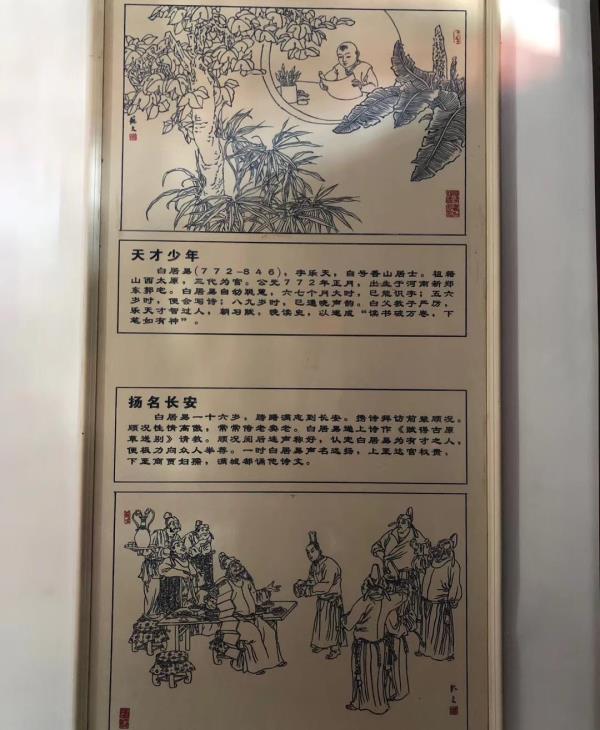 天才少年
白居易(772-846)，字乐天，自号香山居士。祖籍
山西太原，三代为官。公元772年正月，出生于河南新郑
东郭宅。白居易自幼聪慧，六七个月大时，已能识字；五六
岁时，便会写诗；八九岁时，已通晓声韵。白父教子严厉，
乐天才智过人，朝习赋，晚读史，以速成“读书破万卷，下
笔如有神”。
扬名长安
白居易一十六岁，踌躇满志到长安。携诗拜访前辈顾况。
顾况性情高傲，常常倚老卖老。白居易递上诗作《赋得古原
草送别》请教。顾况阅后连声称好，认定白居易为有才之人，
便极力向众人举荐。一时白居易声名远扬，上至达官权贵，
下至商贾妇孺，满城都诵他诗文。